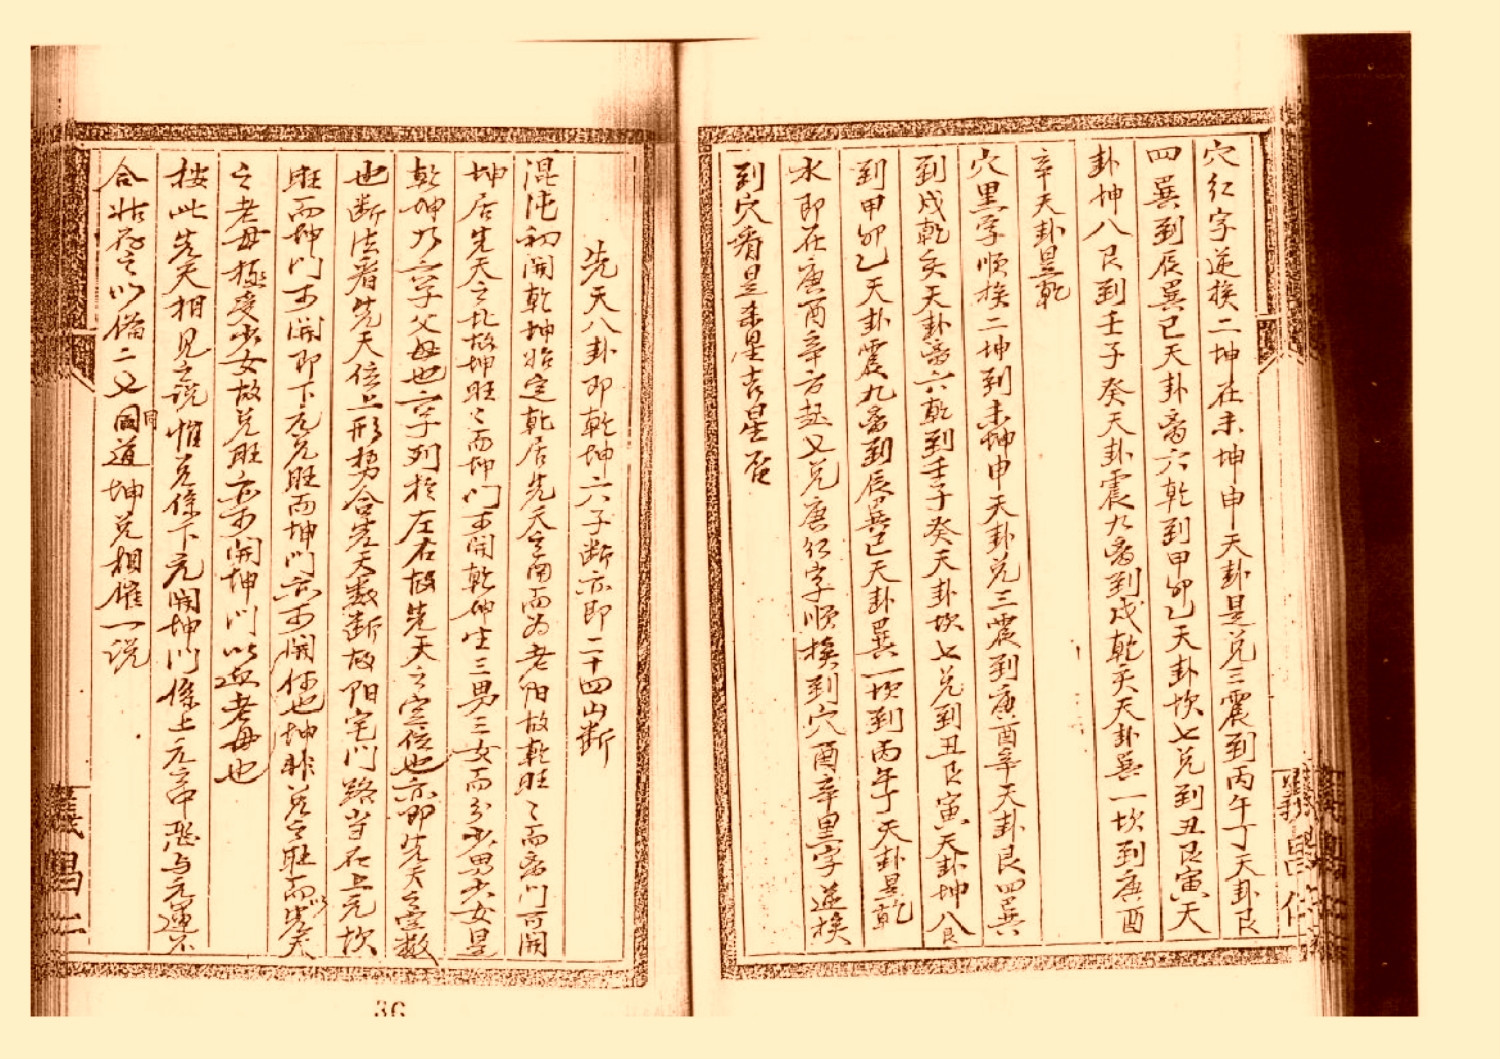 穴紅字逆挨二坤在未坤申天卦是兑三震到丙午丁天卦艮
四巽到辰巽巳天卦离六乾到甲卯乙天卦坎七兑到丑艮寅天
卦坤八艮到壬子癸天卦震九离到戍乾亥天卦巽一坎到庚酉
辛天卦是乾
穴黑字順挨二坤到未坤申天卦兑三震到庚酉辛天卦艮四巽
到戍乾亥天卦离六乾到壬子癸天卦坎七兑到丑艮寅天卦坤八艮
到甲卯乙天卦震九离到辰巽巳天卦巽一坎到丙午丁天卦是乾
水即在庚酉辛方起又兑庚紅字順挨到穴酉辛黑字逆挨
到穴看是来星吉星否
先天八卦即乾坤六子断亦即二十四山断
混沌初開乾坤始定乾居先天之南而为老阳故乾旺之而离门可開
坤居先天之北故坤旺之而坤门可開乾坤生三男三女而分少男少女是
乾坤乃六子父母也六子列於左右故先天之空位也亦即先天之空数
也断法看先天位上形势合先天数断故阳宅门路当在上元坎
旺而坤门可開即下元兑旺而坤门亦可開何也坤非兑之旺而先天
之老母極愛少女故兑旺亦可開坤门以迎老母也
按此先天相見之说惟兑係下元開坤门係上元立中恐与元運不
合姑存之以俻二父同道坤兑相催一说
義昌仁
36